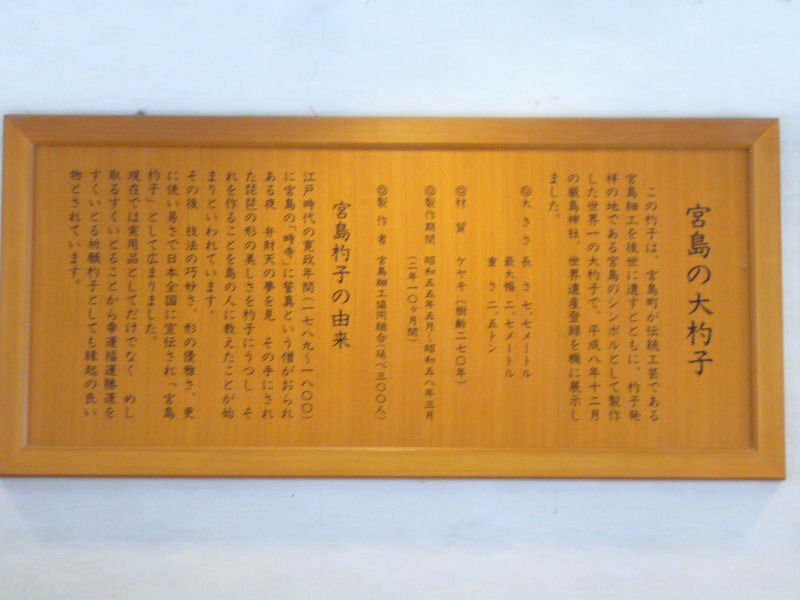 宮島の大杓子
この杓子は、宮島町が伝統工芸である
宮島細工を後世に遺すとともに、杓子発
祥の地である宮島のシンボルとして製作
した世界一の大杓子で、平成八年十二月
の厳島神社、世界遺産登録を機に展示し
ました。
◎大きさ 長さ 七、七メートル
最大幅 二、七メートル
重さ 二、五トン
◎材質 ケヤキ(樹齢二七〇年)
◎製作期間 昭和五五年五月~昭和五八年三月
(二年一〇ヶ月間)
◎製作者 宮島細工協同組合(延べ三〇〇人)
宮島杓子の由来
江戸時代の寛政年間(一七八九~一八〇〇)
に宮島の「時寺」に誓真という僧がおられ
ある夜 弁財天の夢を見 その手にされ
た琵琶の形の美しさを杓子にうつし そ
れを作ることを島の人に教えたことが始
まりといわれています。
その後、技法の巧妙さ、形の優雅さ、更
に使い易さで日本全国に宣伝され「宮島
杓子」として広まりました。
現在では実用品としてだけでなく めし
取るすくいとることから幸運福運勝運を
すくいとる祈願杓子としても縁起の良い
物とされています。